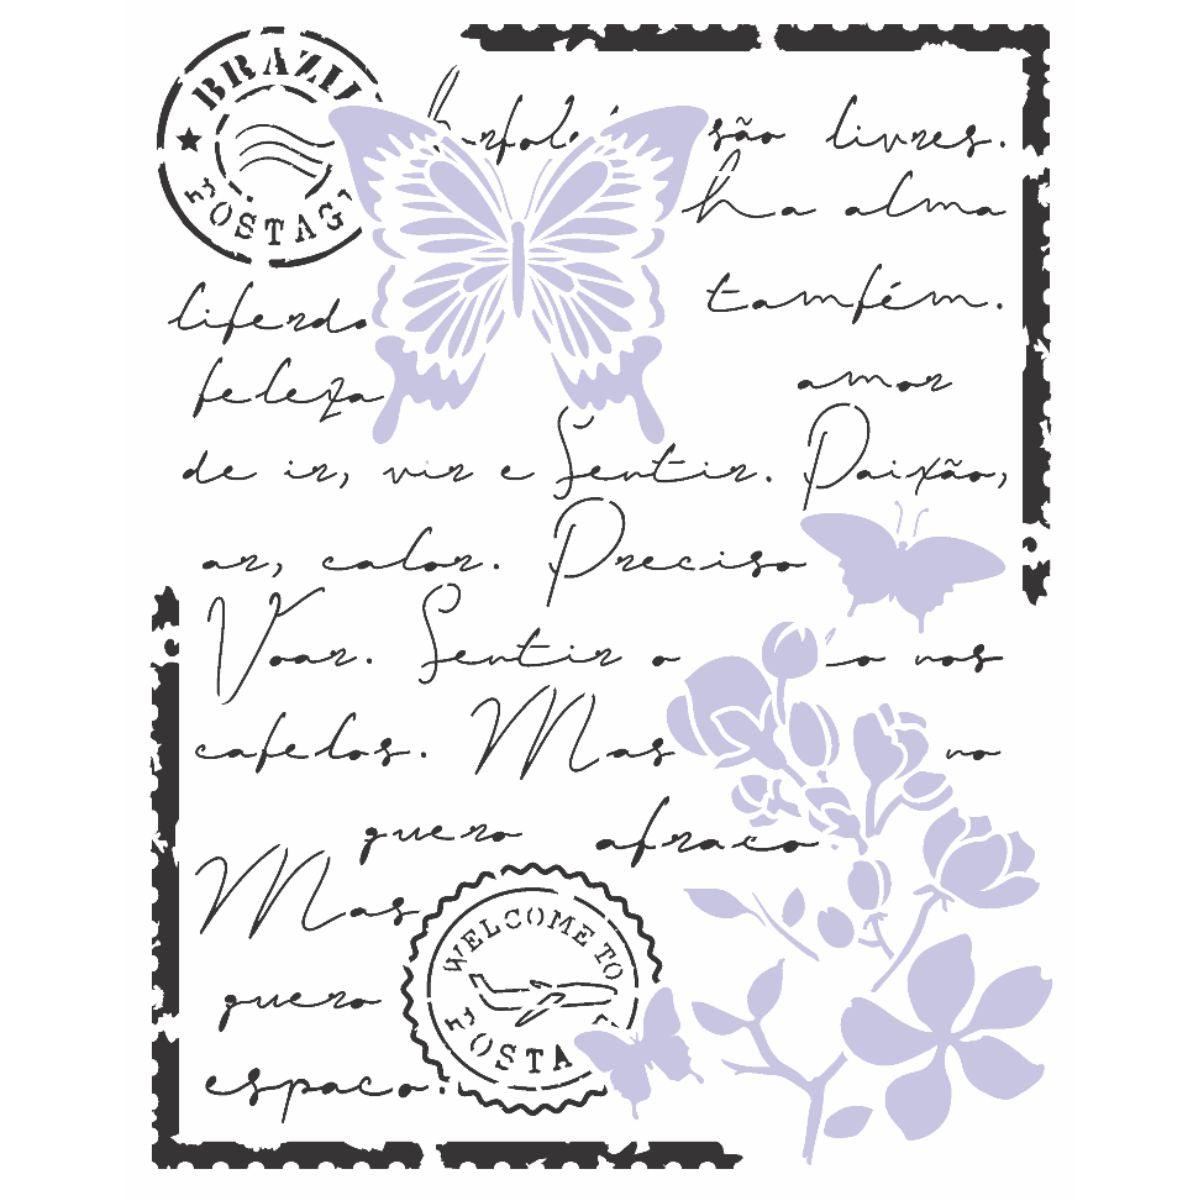 BRAZIL
POSTAG
são livres.
ha alma
também.
liberdo
beleza
amor
de ir, vir e Sentir. Paixão,
ar, calor. Preciso
Voar. Sentir o nos
cabelos. Mas no
quero abraco
Mas
WELCOME TO
POSTA
quero
espaco.